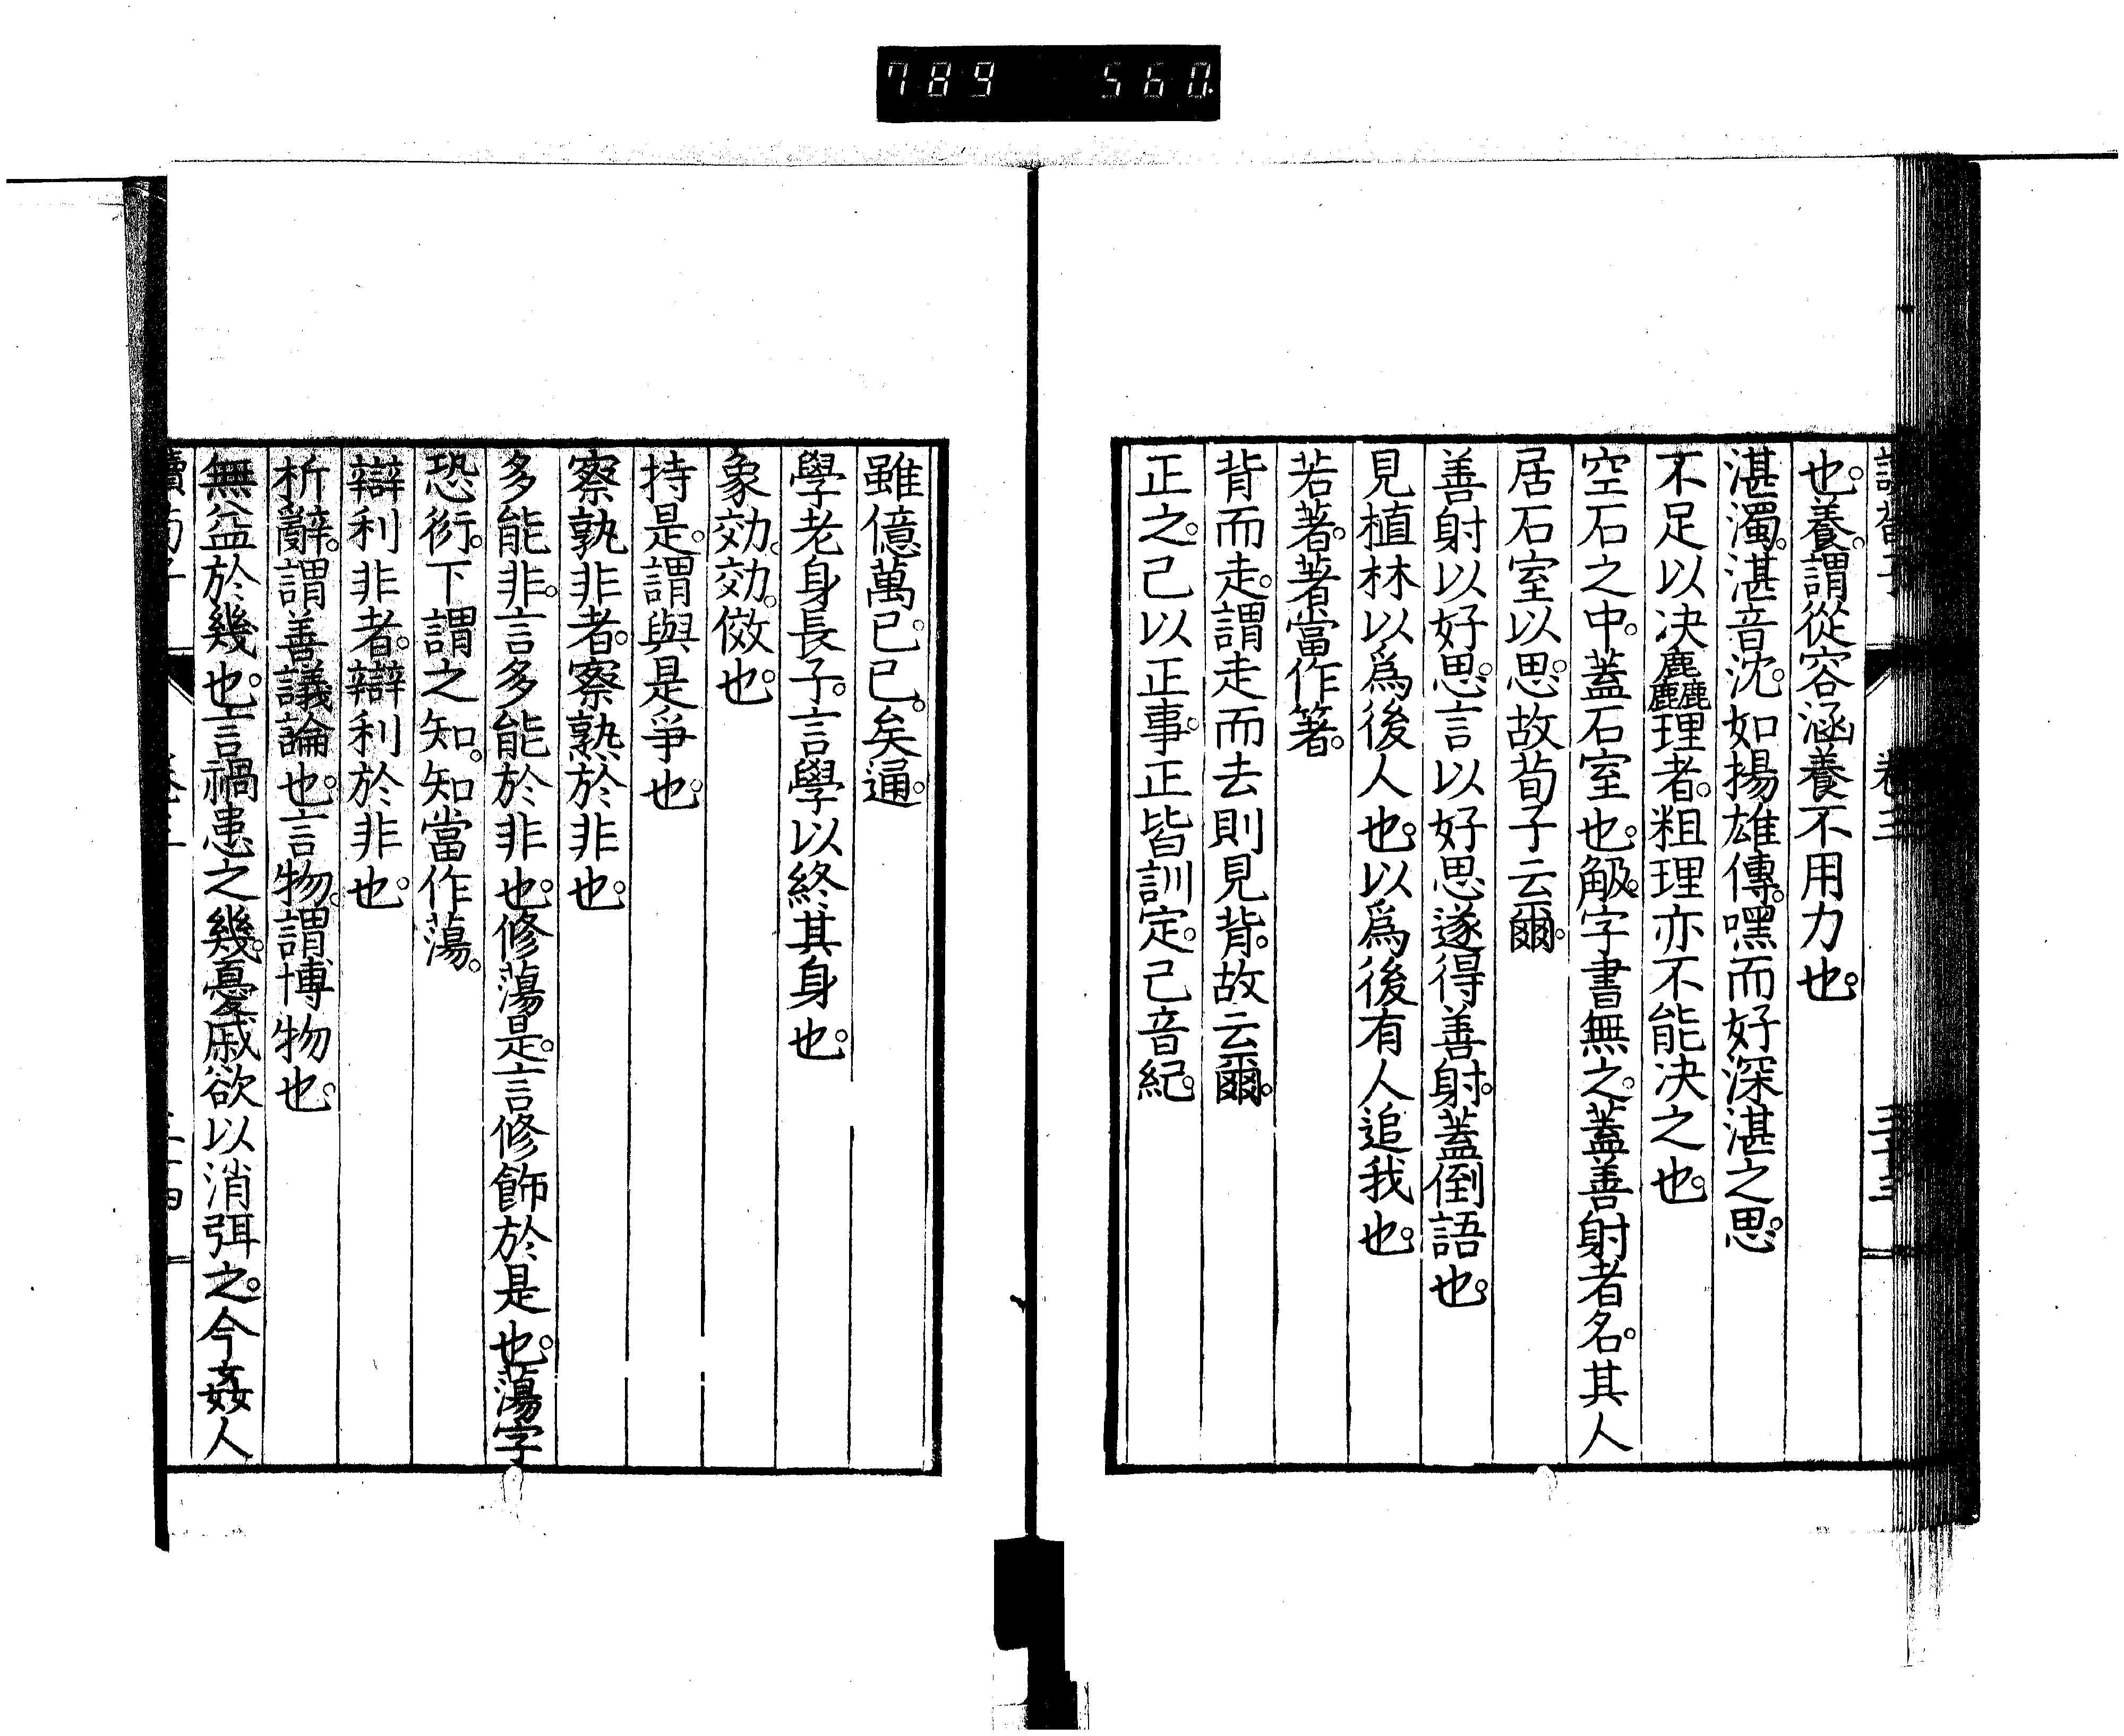 789 560
也。養。謂從容涵養不用力也。
湛濁。湛音沈。如揚雄傳。嘿而好深湛之思。
不足以决麤理者。粗理亦不能决之也。
空石之中。蓋石室也。觙。字書無之。蓋善射者名。其人
居石室以思。故荀子云爾。
善射以好思。言以好思遂得善射。蓋倒語也。
見植林以爲後人也。以爲後有人追我也。
若著。著當作箸。
背而走。謂走而去則見背。故云爾。
正之。己以正事。正皆訓定。己音紀。
雖億萬已。已。矣。逼。
學老身長子。言學以終其身也。
象効。効。傚也。
持是。謂與是爭也。
察孰非者。察熟於非也。
多能非。言多能於非也。修蕩是。言修飾於是也。蕩字
恐衍。下謂之知。知當作蕩。
辯利非者。辯利於非也。
析辭。謂善議論也。言物。謂博物也。
無益於幾也。言禍患之幾。憂戚欲以消弭之。今姦人